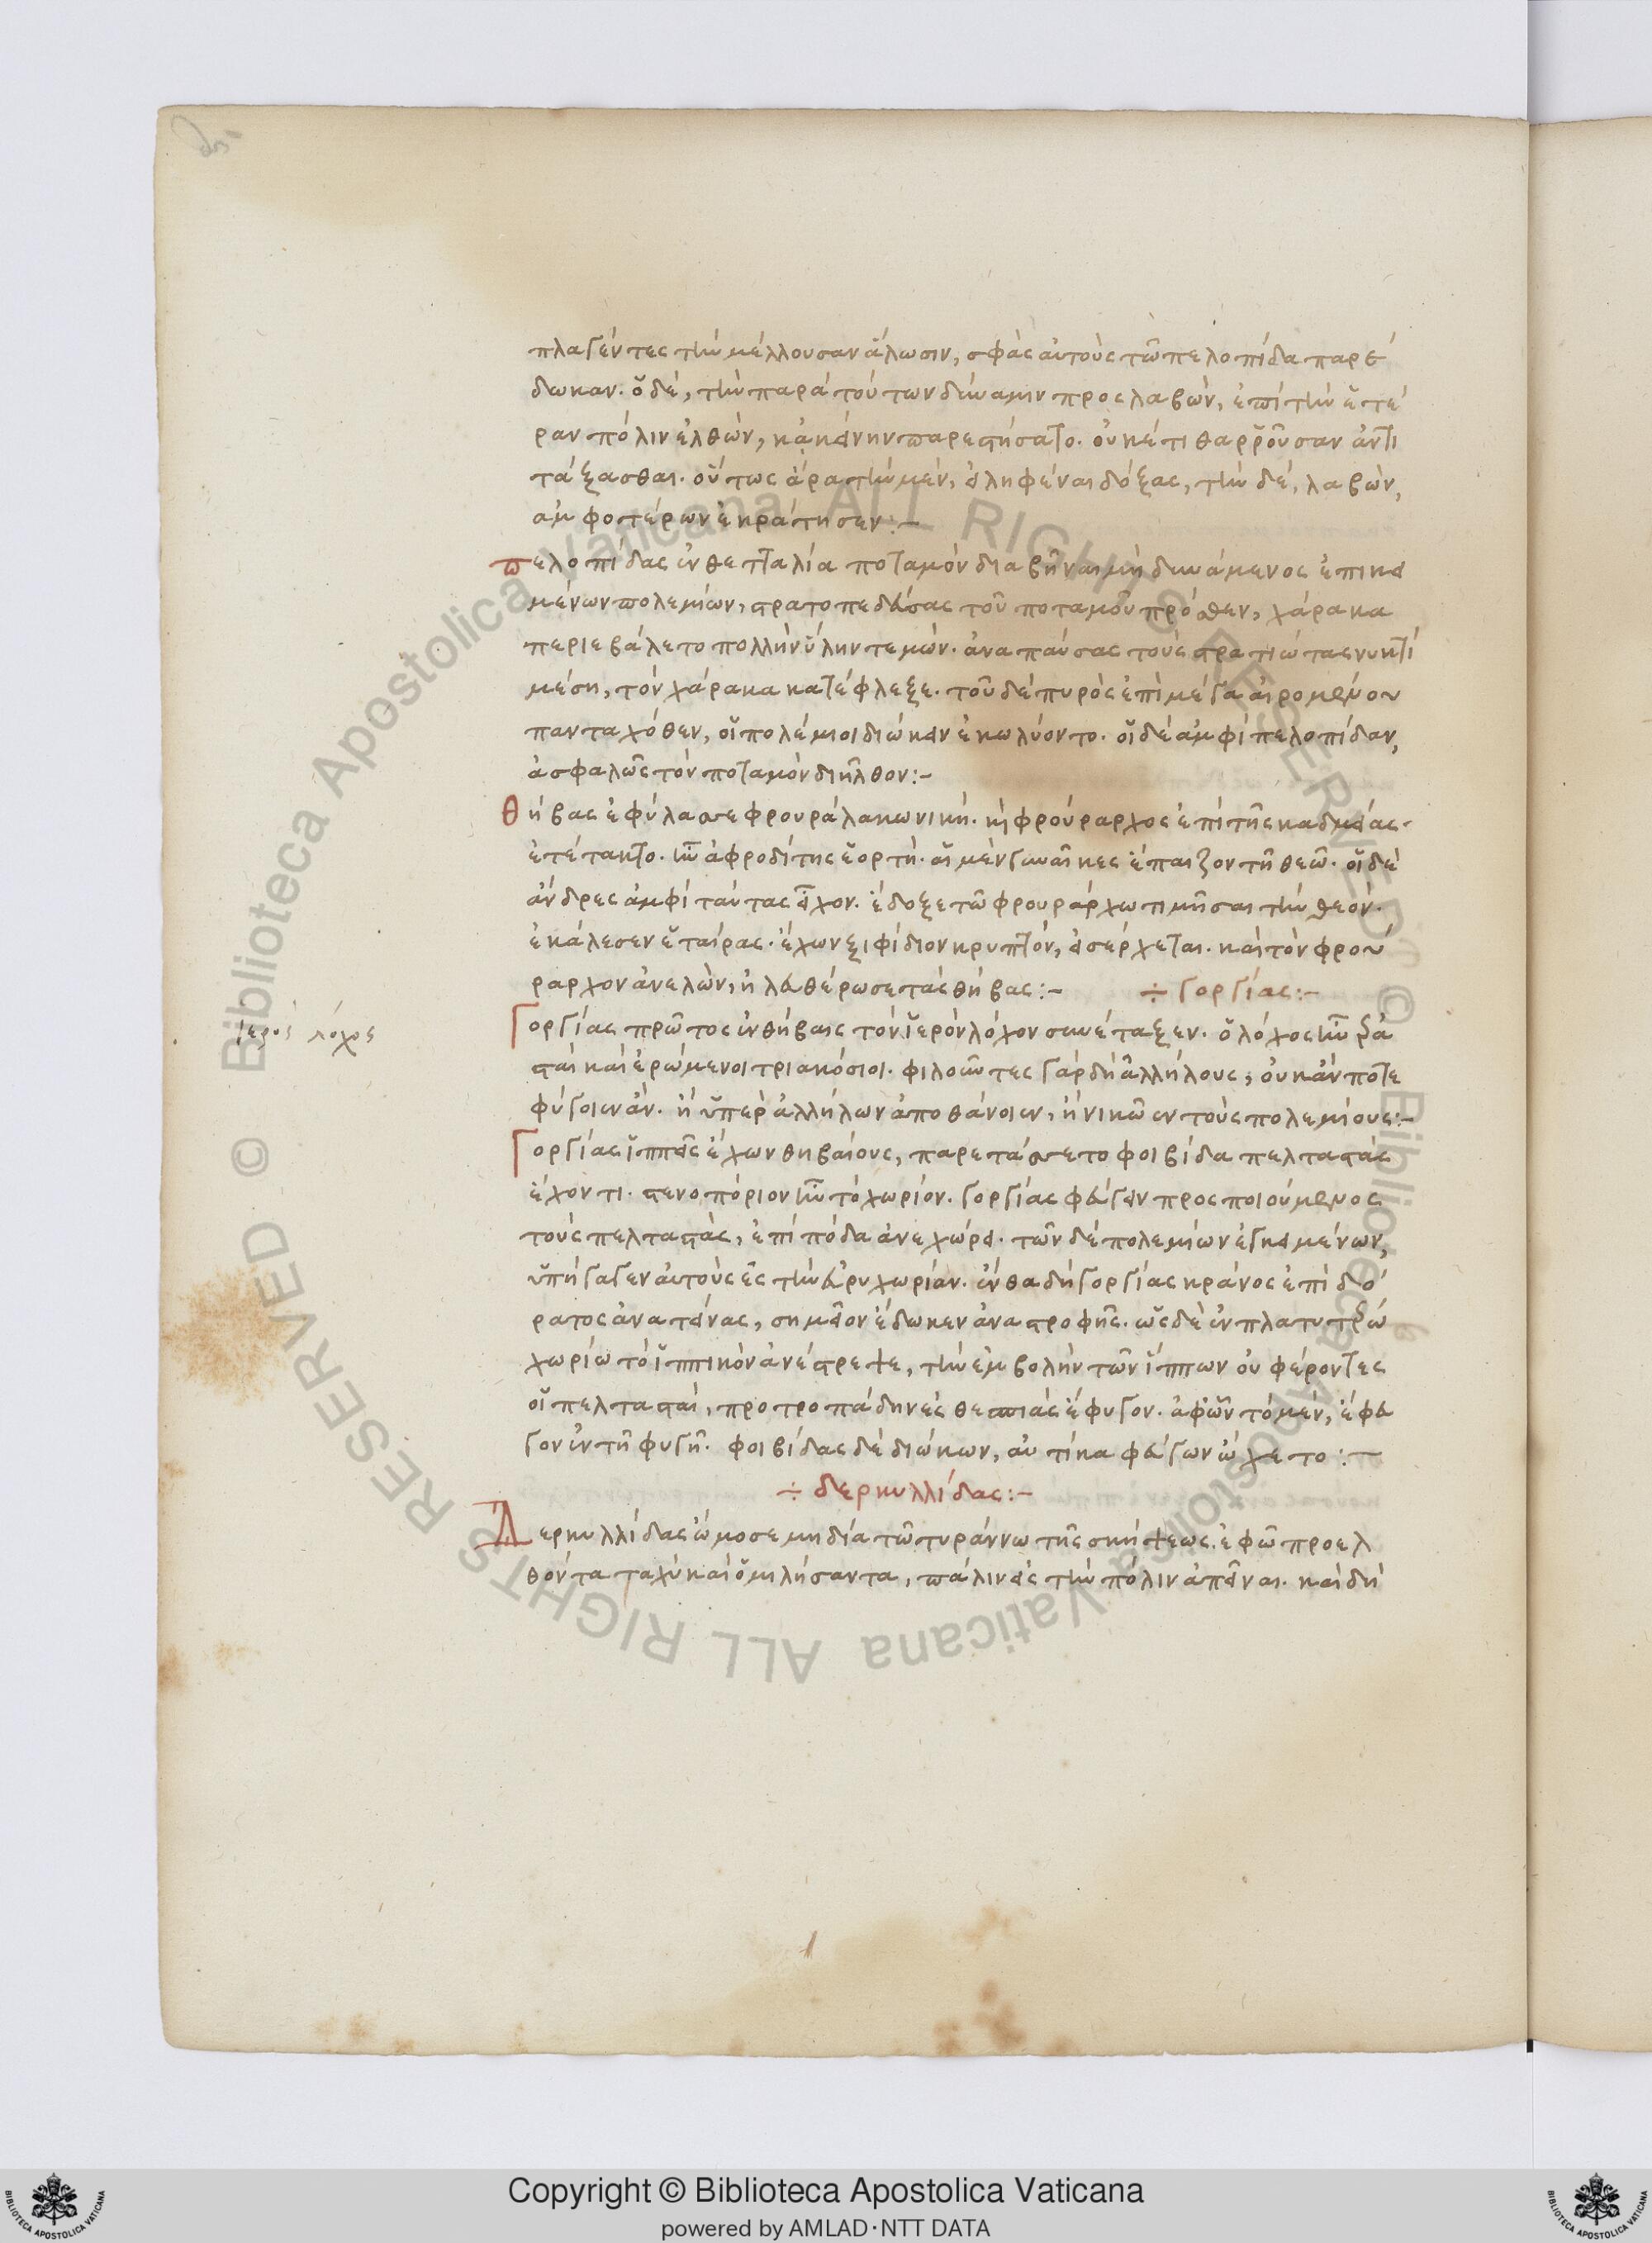 πλαγέντες τὴν μέλλουσαν ἅλωσιν, σφὰς αὐτοὺς τῶ πελοπίδα παρέ
δωκαν. ὁ δὲ, τὴν παρὰ τούτων δύναμιν προσλαβὼν, ἐπὶ τὴν ἑτέ
ραν πόλιν ἐλθὼν, κἀκείνην παρεστήσατο. οὐκέτι θαρροῦσαν ἀντι
τάξασθαι. οὕτως ἄρα τὴν μὲν, εἰληφέναι δόξας, τὴν δὲ, λαβὼν,
ἀμφοτέρων ἐκράτησεν:-
πελοπίδας ἐν θετταλία ποταμὸν διαβῆναι μὴ δυνάμενος ἐπικει
μένων πολεμίων, στρατοπεδεύσας τοῦ ποταμοῦ πρόσθεν, χάρακα
περιεβάλετο πολλὴν ὕλην τεμών. ἀναπαύσας τοὺς στρατιώτας νυκτὶ
μέση, τὸν χάρακα κατέφλεξε. τοῦ δὲ πυρὸς ἐπὶ μέγα αἰρομένου
πανταχόθεν, οἱ πολέμιοι διώκειν ἐκωλύοντο. οἱ δὲ ἀμφὶ πελοπίδαν,
ἀσφαλῶς τὸν ποταμὸν διῆλθον:-
θήβας ἐφύλασσε φρουρὰ λακωνική. καὶ φρούραρχος ἐπὶ τῆς καδμείας.
ἐτέτακτο. ἦν ἀφροδίτης ἑορτή. αἱ μὲν γυναῖκες ἔπαιζον τῆ θεῶ. οἱ δὲ
ἄνδρες ἀμφὶ ταύτας εἶχον. ἔδοξε τῶ φρουράρχω τιμῆσαι τὴν θεόν.
ἐκάλεσεν ἑταίρας. ἔχων ξιφίδιον κρυπτὸν, εἰσέρχεται. καὶ τὸν φρού
ραρχον ἀνελὼν, ἠλευθέρωσε τὰς θήβας:- ÷ γοργίας:-
ἱερὸς λόχος
Γοργίας πρῶτος ἐν θήβαις τὸν ἱερὸν λόχον συνέταξεν. ὁ λόχος ἦν ἐρα
σταὶ καὶ ἐρώμενοι τριακόσιοι. φιλοῦντες γὰρ δὴ ἀλλήλους, οὐκ ἄν ποτε
φύγοιεν ἄν. ἢ ὑπὲρ ἀλλήλων ἀποθάνοιεν, ἢ νικῶεν τοὺς πολεμίους:-
Γοργίας ἱππεῖς ἔχων θηβαίους, παρετάσσετο φοιβίδα πελταστὰς
ἔχοντι. στενοπόριον ἦν τὸ χωρίον. γοργίας φεύγειν προσποιούμενος
τοὺς πελταστὰς, ἐπὶ πόδα ἀνεχώρει. τῶν δὲ πολεμίων ἐγκειμένων,
ὑπήγαγεν αὐτοὺς ἐς τὴν εὐρυχωρίαν. ἔνθα δὴ γοργίας κράνος ἐπὶ δό
ρατος ἀνατείνας, σημεῖον ἔδωκεν ἀναστροφῆς. ὡς δὲ ἐν πλατυτέρω
χωρίω τὸ ἱππικὸν ἀνέστρεψε, τὴν ἐμβολὴν τῶν ἵππων οὐ φέροντες
οἱ πελτασταὶ, προτροπάδην ἐς θεσπιὰς ἔφυγον. ἀφ' ὧν τὸ μὲν, ἔφευ
γον ἐν τῆ φυγῆ. φοιβίδας δὲ διώκων, αὐτίκα φεύγων ὤχετο:-
÷ δερκυλλίδας:-
Δερκυλλίδας ὤμοσε μηδία τῶ τυράννω τῆς σκήψεως. ἐφ' ὧ προελ
θόντα ταχὺ καὶ ὁμιλήσαντα, πάλιν εἰς τὴν πόλιν ἀπεῖναι. καὶ δὴ
Copyright © Biblioteca Apostolica Vaticana
powered by AMLAD·NTT DATA